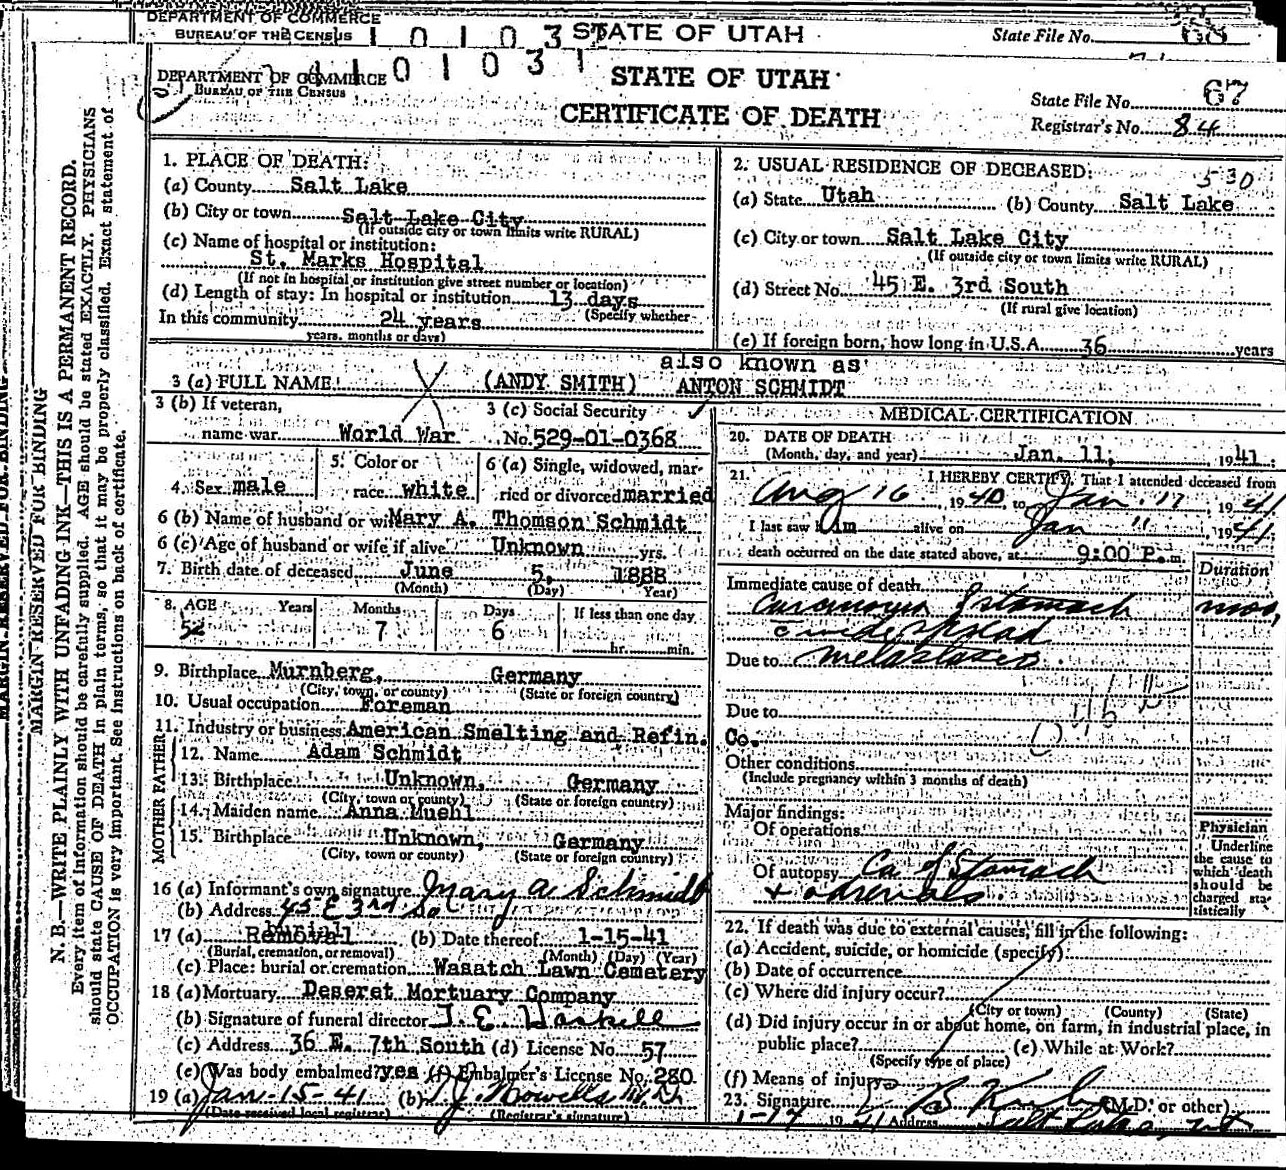 DEPARTMENT OF COMMERCE
BUREAU OF THE CENSUS
STATE OF UTAH
State File No. 68
DEPARTMENT OF COMMERCE
BUREAU OF THE CENSUS
STATE OF UTAH
CERTIFICATE OF DEATH
State File No. 67
Registrar's No. 84
MARGIN RESERVED FOR BINDING
N. B.—WRITE PLAINLY WITH UNFADING INK—THIS IS A PERMANENT RECORD.
Every item of information should be carefully supplied. AGE should be stated EXACTLY. PHYSICIANS
should state CAUSE OF DEATH in plain terms, so that it may be properly classified. Exact statement of
OCCUPATION is very important. See instructions on back of certificate.
1. PLACE OF DEATH:
(a) County Salt Lake
(b) City or town Salt Lake City
(If outside city or town limits write RURAL)
(c) Name of hospital or institution:
St. Marks Hospital
(If not in hospital or institution give street number or location)
(d) Length of stay: In hospital or institution 13 days
(Specify whether
In this community 24 years
years, months or days)
2. USUAL RESIDENCE OF DECEASED: 530
(a) State Utah (b) County Salt Lake
(c) City or town Salt Lake City
(If outside city or town limits write RURAL)
(d) Street No. 45 E. 3rd South
(If rural give location)
(e) If foreign born, how long in U.S.A. 36 years
also known as
3 (a) FULL NAME (ANDY SMITH) ANTON SCHMIDT
3 (b) If veteran,
name war World War
3 (c) Social Security
No. 529-01-0368
4. Sex male
5. Color or
race white
6 (a) Single, widowed, mar-
ried or divorced married
6 (b) Name of husband or wife Mary A. Thomson Schmidt
6 (c) Age of husband or wife if alive Unknown yrs.
7. Birth date of deceased June 5, 1888
(Month) (Day) Year)
8. AGE Years Months Days If less than one day
52 7 6 hr. min.
9. Birthplace Murnberg, Germany
(City, town, or county) (State or foreign country)
10. Usual occupation Foreman
11. Industry or business American Smelting and Refin.
Co.
FATHER
12. Name Adam Schmidt
13. Birthplace Unknown, Germany
(City, town or county) (State or foreign country)
MOTHER
14. Maiden name Anna Muehl
15. Birthplace Unknown, Germany
(City, town or county) (State or foreign country)
16 (a) Informant's own signature Mary A Schmidt
(b) Address 45 E 3rd So
17 (a) Burial Removal (b) Date thereof 1-15-41
(Burial, cremation, or removal) (Month) (Day) (Year)
(c) Place: burial or cremation Wasatch Lawn Cemetery
18 (a) Mortuary Deseret Mortuary Company
(b) Signature of funeral director
(c) Address 36 E. 7th South (d) License No. 57
(e) Was body embalmed? yes (f) Embalmer's License No. 280
19 (a) Jan-15-41 (b)
(Date received local registrar) (Registrar's signature)
MEDICAL CERTIFICATION
20. DATE OF DEATH
(Month, day, and year) Jan. 11, 1941.
21. I HEREBY CERTIFY, That I attended deceased from
Aug 16, 1940, to Jan. 11, 1941
I last saw him alive on Jan 11, 1941.
death occurred on the date stated above, at 9:00 P.m
Duration
Immediate cause of death
Carcinoma of stomach mos,
c widespread
Due to metastases
Due to
Other conditions
(Include pregnancy within 3 months of death)
Major findings:
Of operations
Of autopsy Ca of Stomach
+ adrenals.
Physician
Underline
the cause to
which death
should be
charged sta-
tistically
22. If death was due to external causes, fill in the following:
(a) Accident, suicide, or homicide (specify)
(b) Date of occurrence
(c) Where did injury occur?
(City or town) (County) (State)
(d) Did injury occur in or about home, on farm, in industrial place, in
public place? (e) While at Work?
(Specify type of place)
(f) Means of injury
23. Signature (M.D. or other)
1-17 1941 Address Salt Lake, Ut